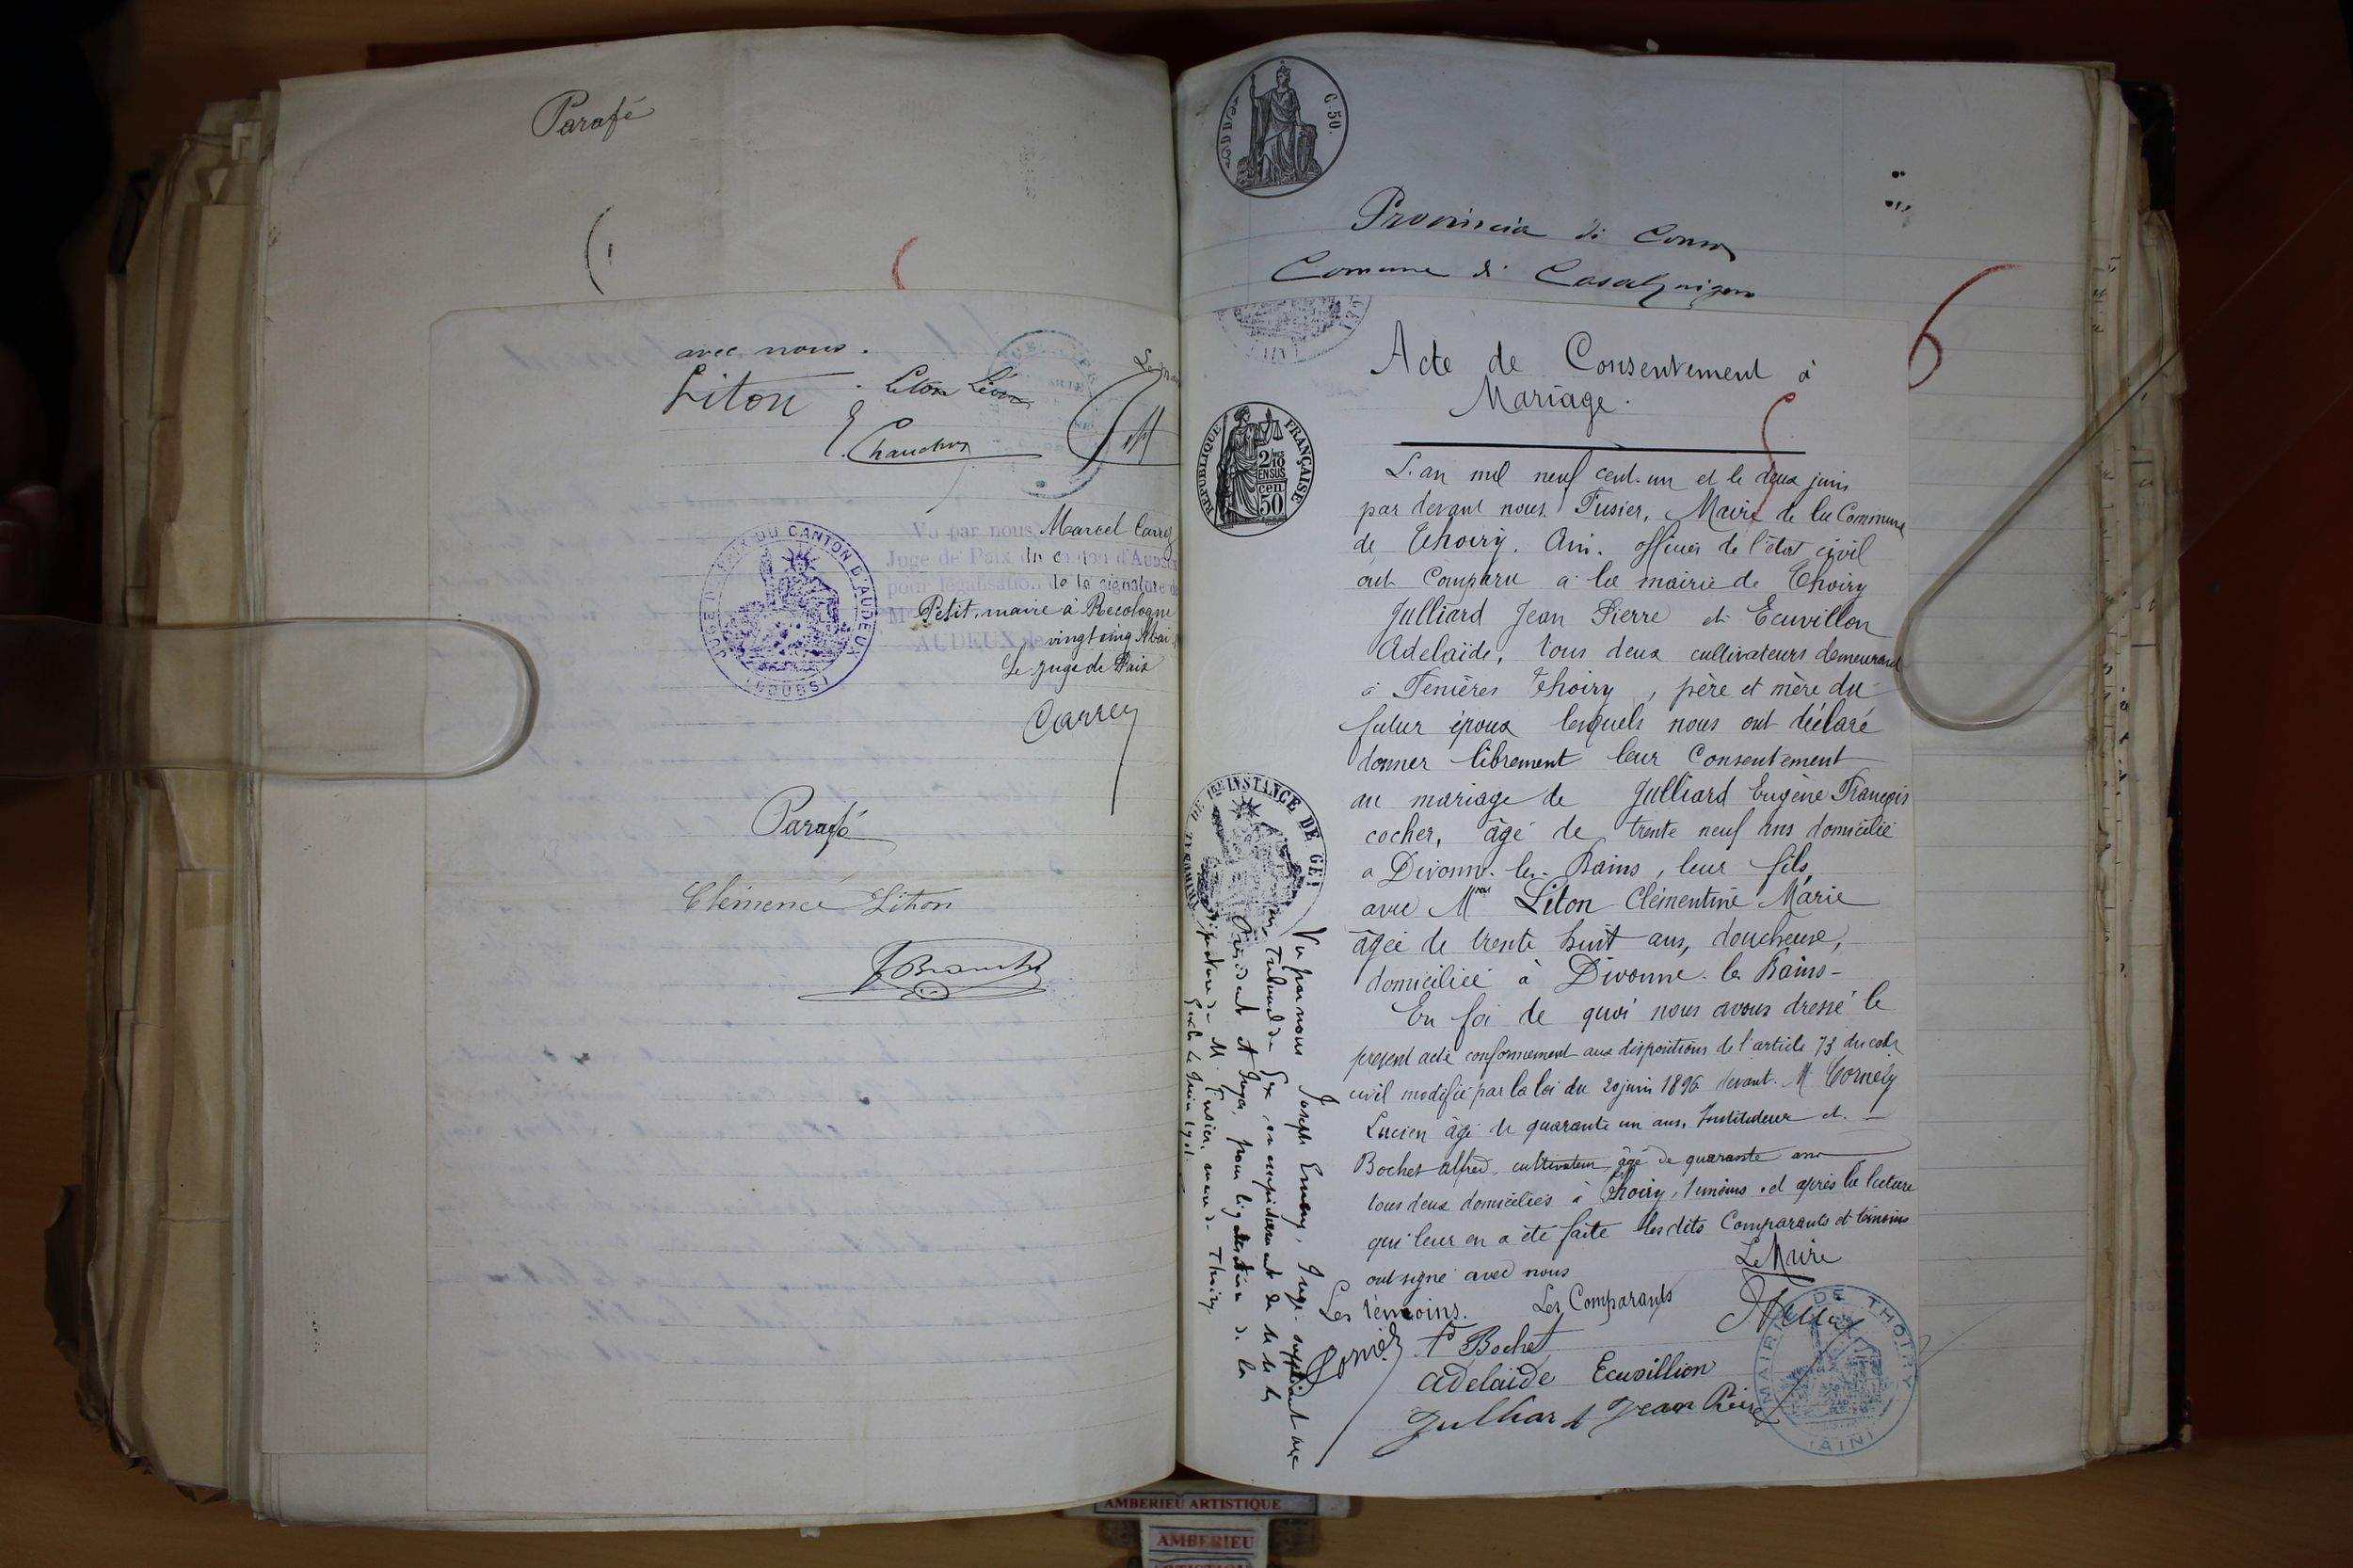 Parafé
avec nous.
Liton
Liton Léon
E. Chauchoy
JUGE DE PAIX DU CANTON D'AUDEUX
(DOUBS)
Vu par nous Marcel Carrey
Juge de Paix du canton d'Audeux
pour légalisation de la signature de
M Petit, maire à Recologne
AUDEUX, le vingt cinq Mai
Le juge de Paix
Carrey
Parafé
Clémence Liton
2 50.
Provincia di Como
Comune di
Acte de Consentement à
Mariage.
REPUBLIQUE FRANÇAISE
2/10 EN SUS
50 cen
L'an mil neuf cent-un et le deux juin
par devant nous Fusier, Maire de la Commune
de Thoiry. Ain. officier de l'état civil
ont comparu a la mairie de Thoiry
Julliard Jean Pierre et Ecuvillon
Adelaïde, tous deux cultivateurs demeurant
à Fenières Thoiry, père et mère du
futur époux lesquels nous ont déclaré
donner librement leur Consentement
au mariage de Julliard Eugène François
cocher, âgé de trente neuf ans domicilié
a Divonne-les-Bains, leur fils,
avec Mme Liton Clémentine Marie
âgée de trente huit ans, doucheuse,
domiciliée à Divonne-les Bains-
En foi de quoi nous avons dressé le
présent acte conformement aux dispositions de l'article 73 du code
civil modifié par la loi du 20 juin 1896 devant. M Cornety
Lucien âgé de quarante un ans, Instituteur et.
Bochet Alfred, cultivateur, âgé de quarante ans
tous deux domiciliés à Thoiry, témoins. et après la lecture
qui leur en a été faite les dits Comparants et témoins
ont signé avec nous
Le Maire
Les témoins. Les Comparants
Ad Bochet
Adelaïde Ecuvillion
Julliard Jean Pierre
MAIRIE DE THOIRY
(AIN)
DE 1ERE INSTANCE DE GEX
Vu par nous Joseph Emery, Juge-suppléant au
Tribunal de Gex, en empêchement de M. le
Président et Juges, pour légalisation de la
signature de M. Fusier, maire de Thoiry.
Gex le 4 Juin 1901
AMBERIEU ARTISTIQUE
AMBERIEU
ARTISTIQUE